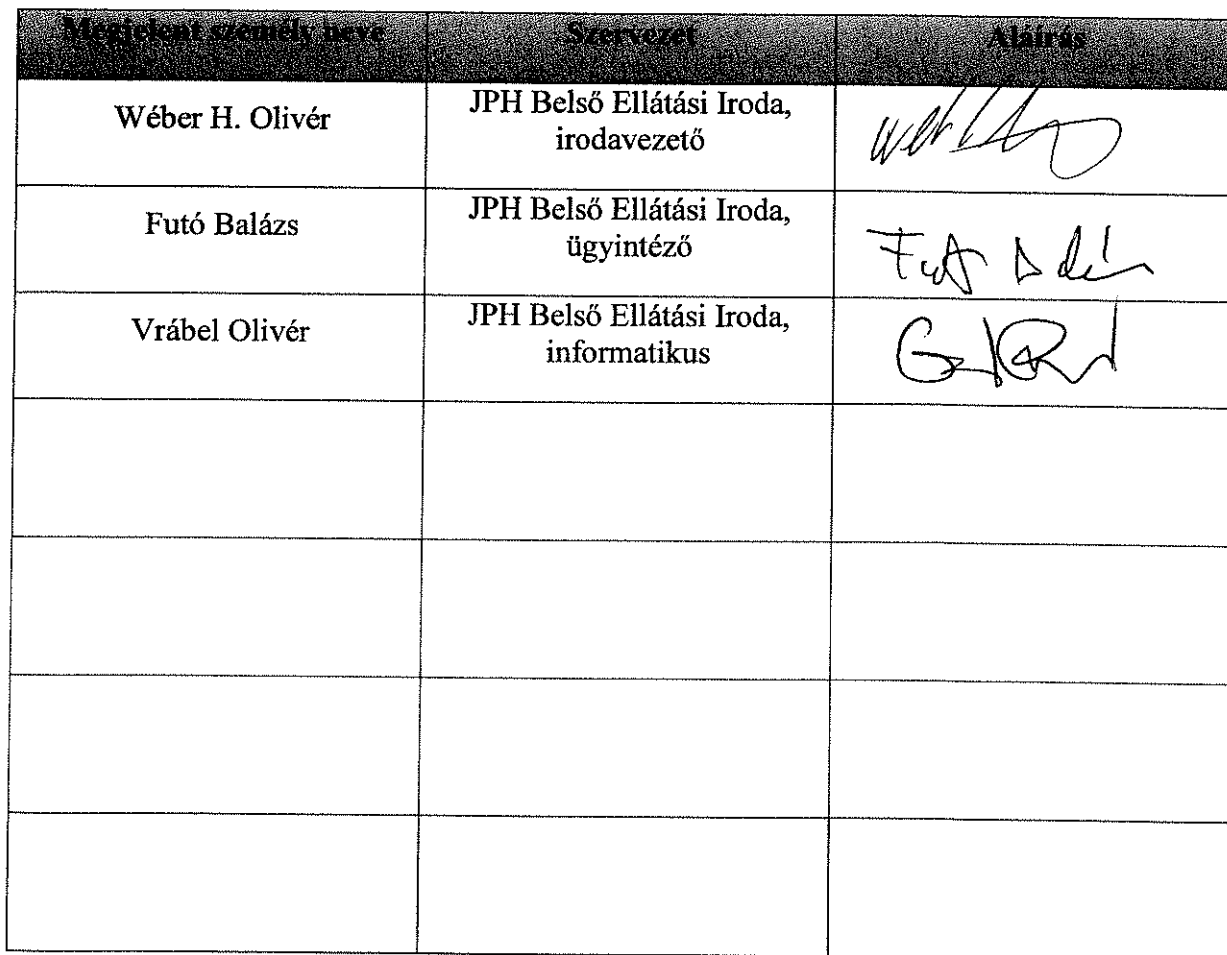 Megjelent személy neve Szervezet Aláírás
Wéber H. Olivér JPH Belső Ellátási Iroda,
irodavezető
Futó Balázs JPH Belső Ellátási Iroda,
ügyintéző
Vrábel Olivér JPH Belső Ellátási Iroda,
informatikus